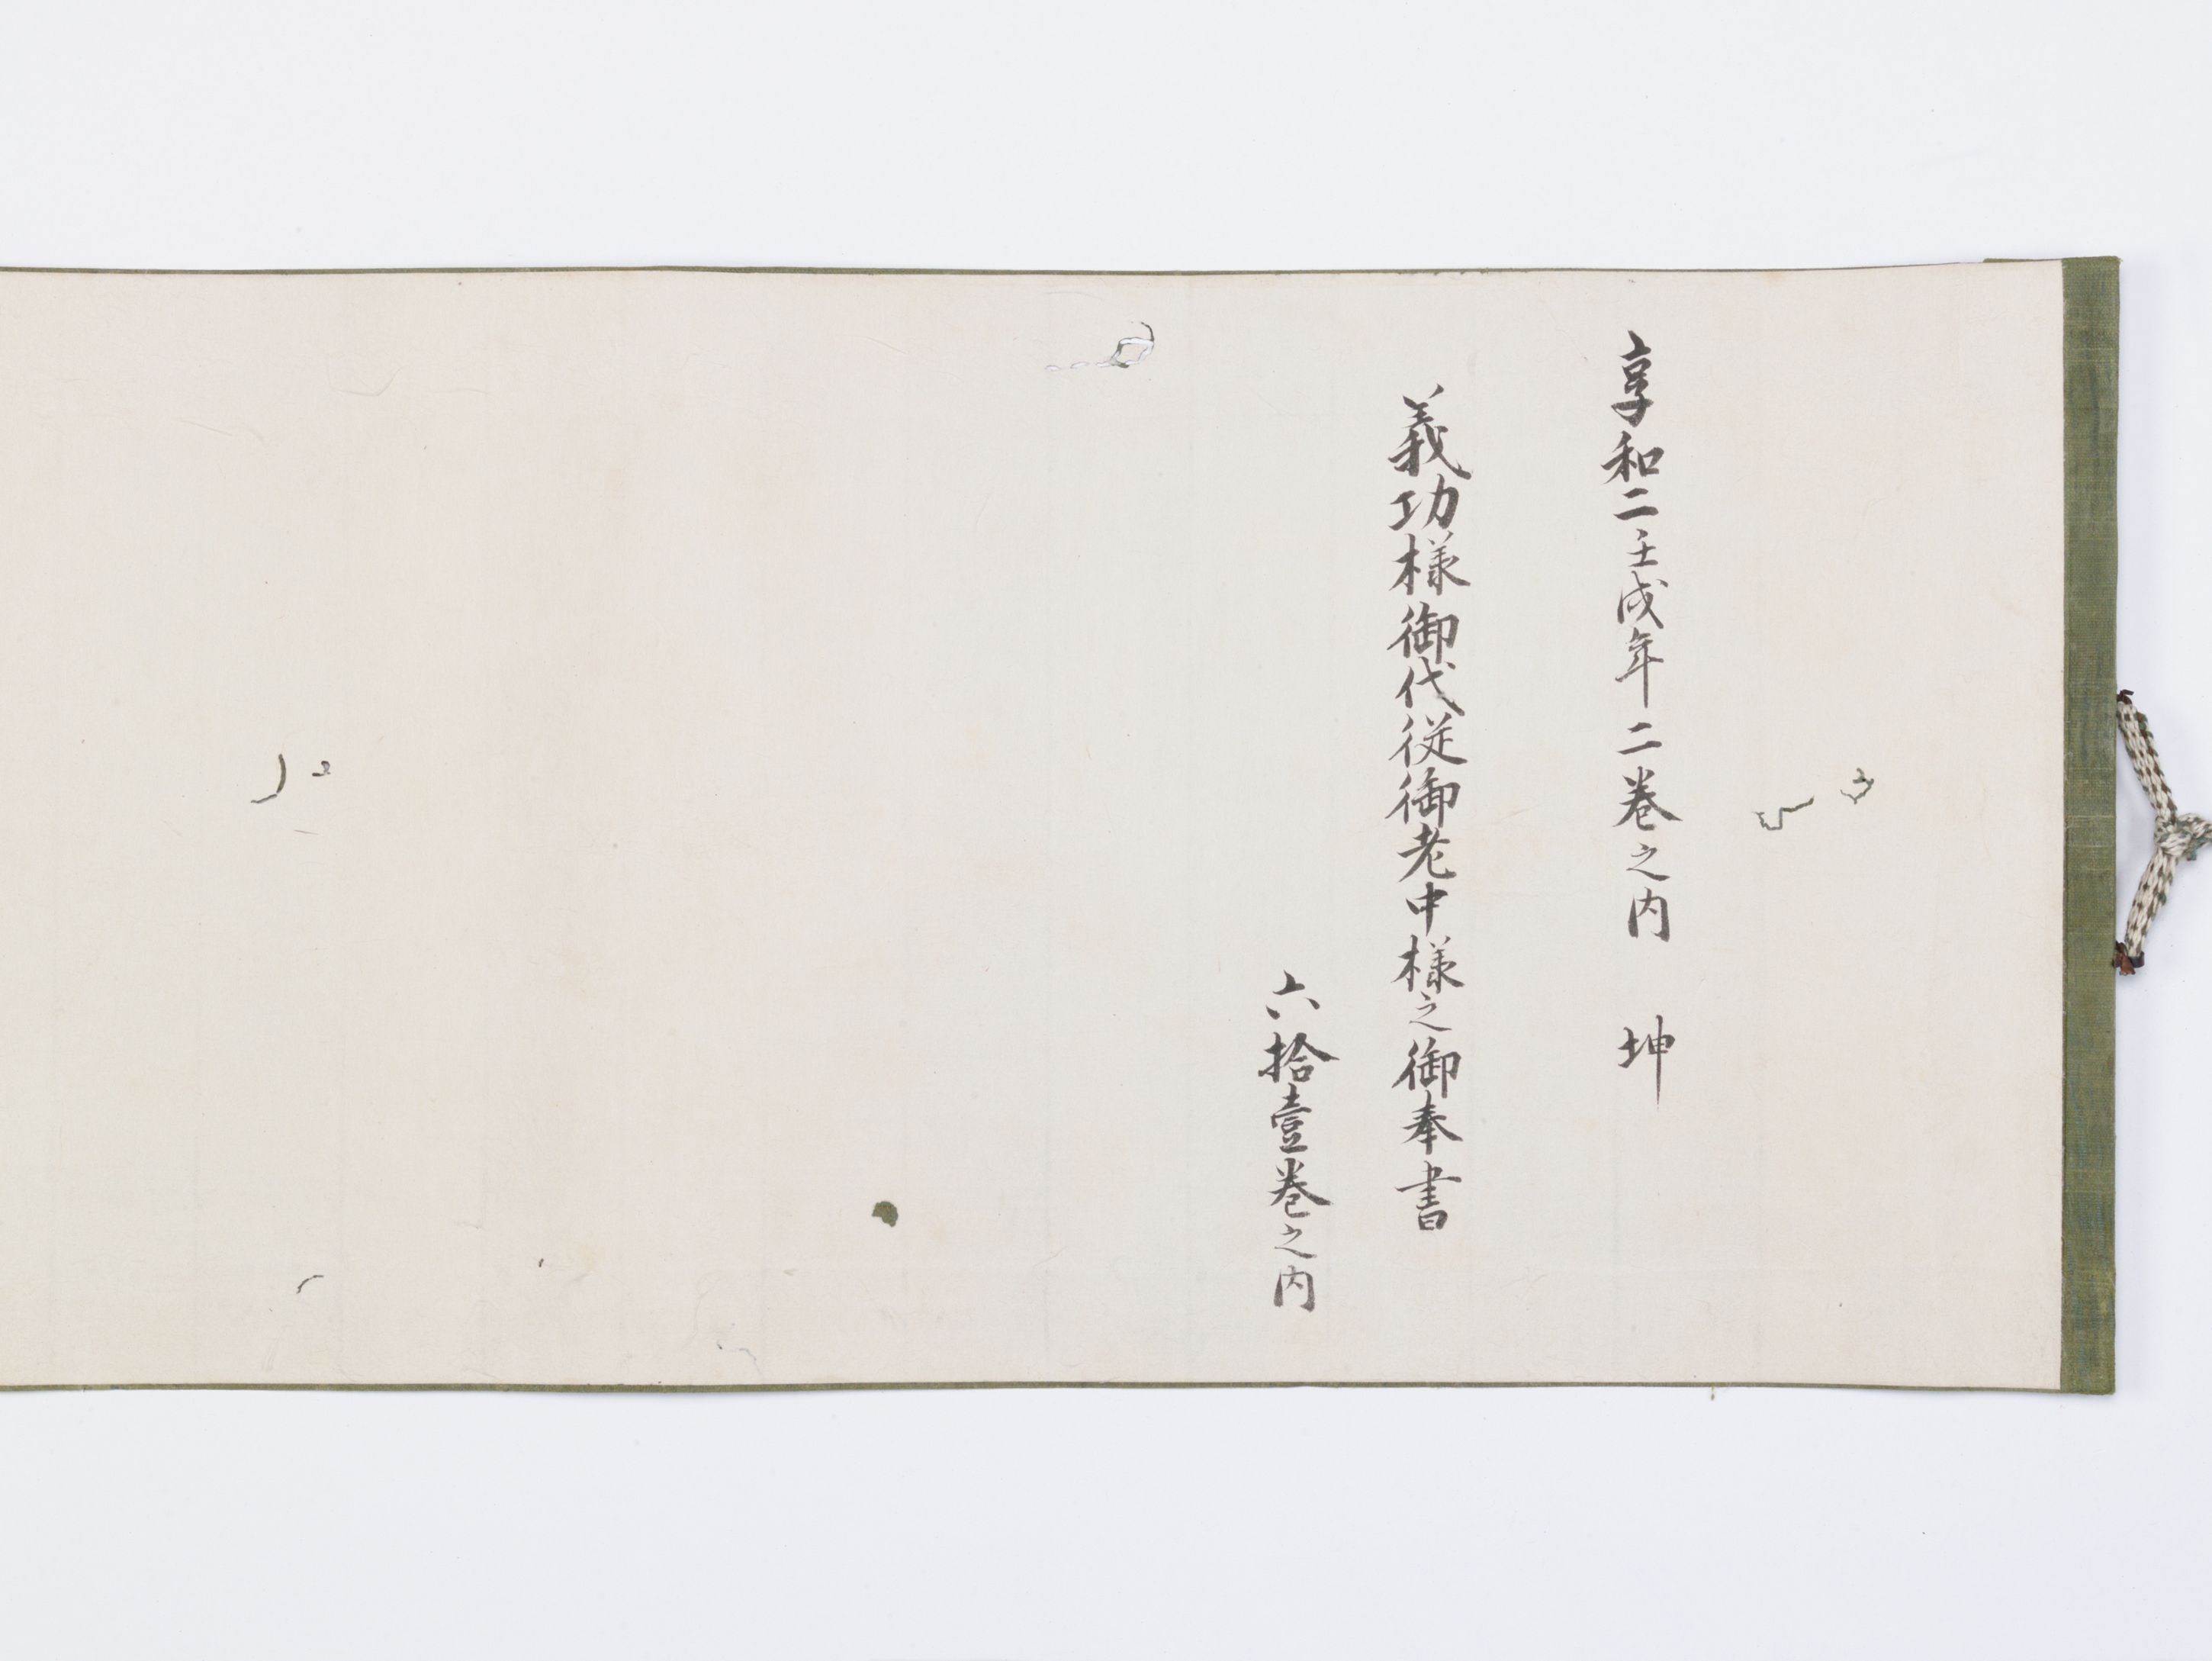 享和二壬戌年二巻之内　坤
義功様御代従御老中様之御奉書
六拾壹巻之内